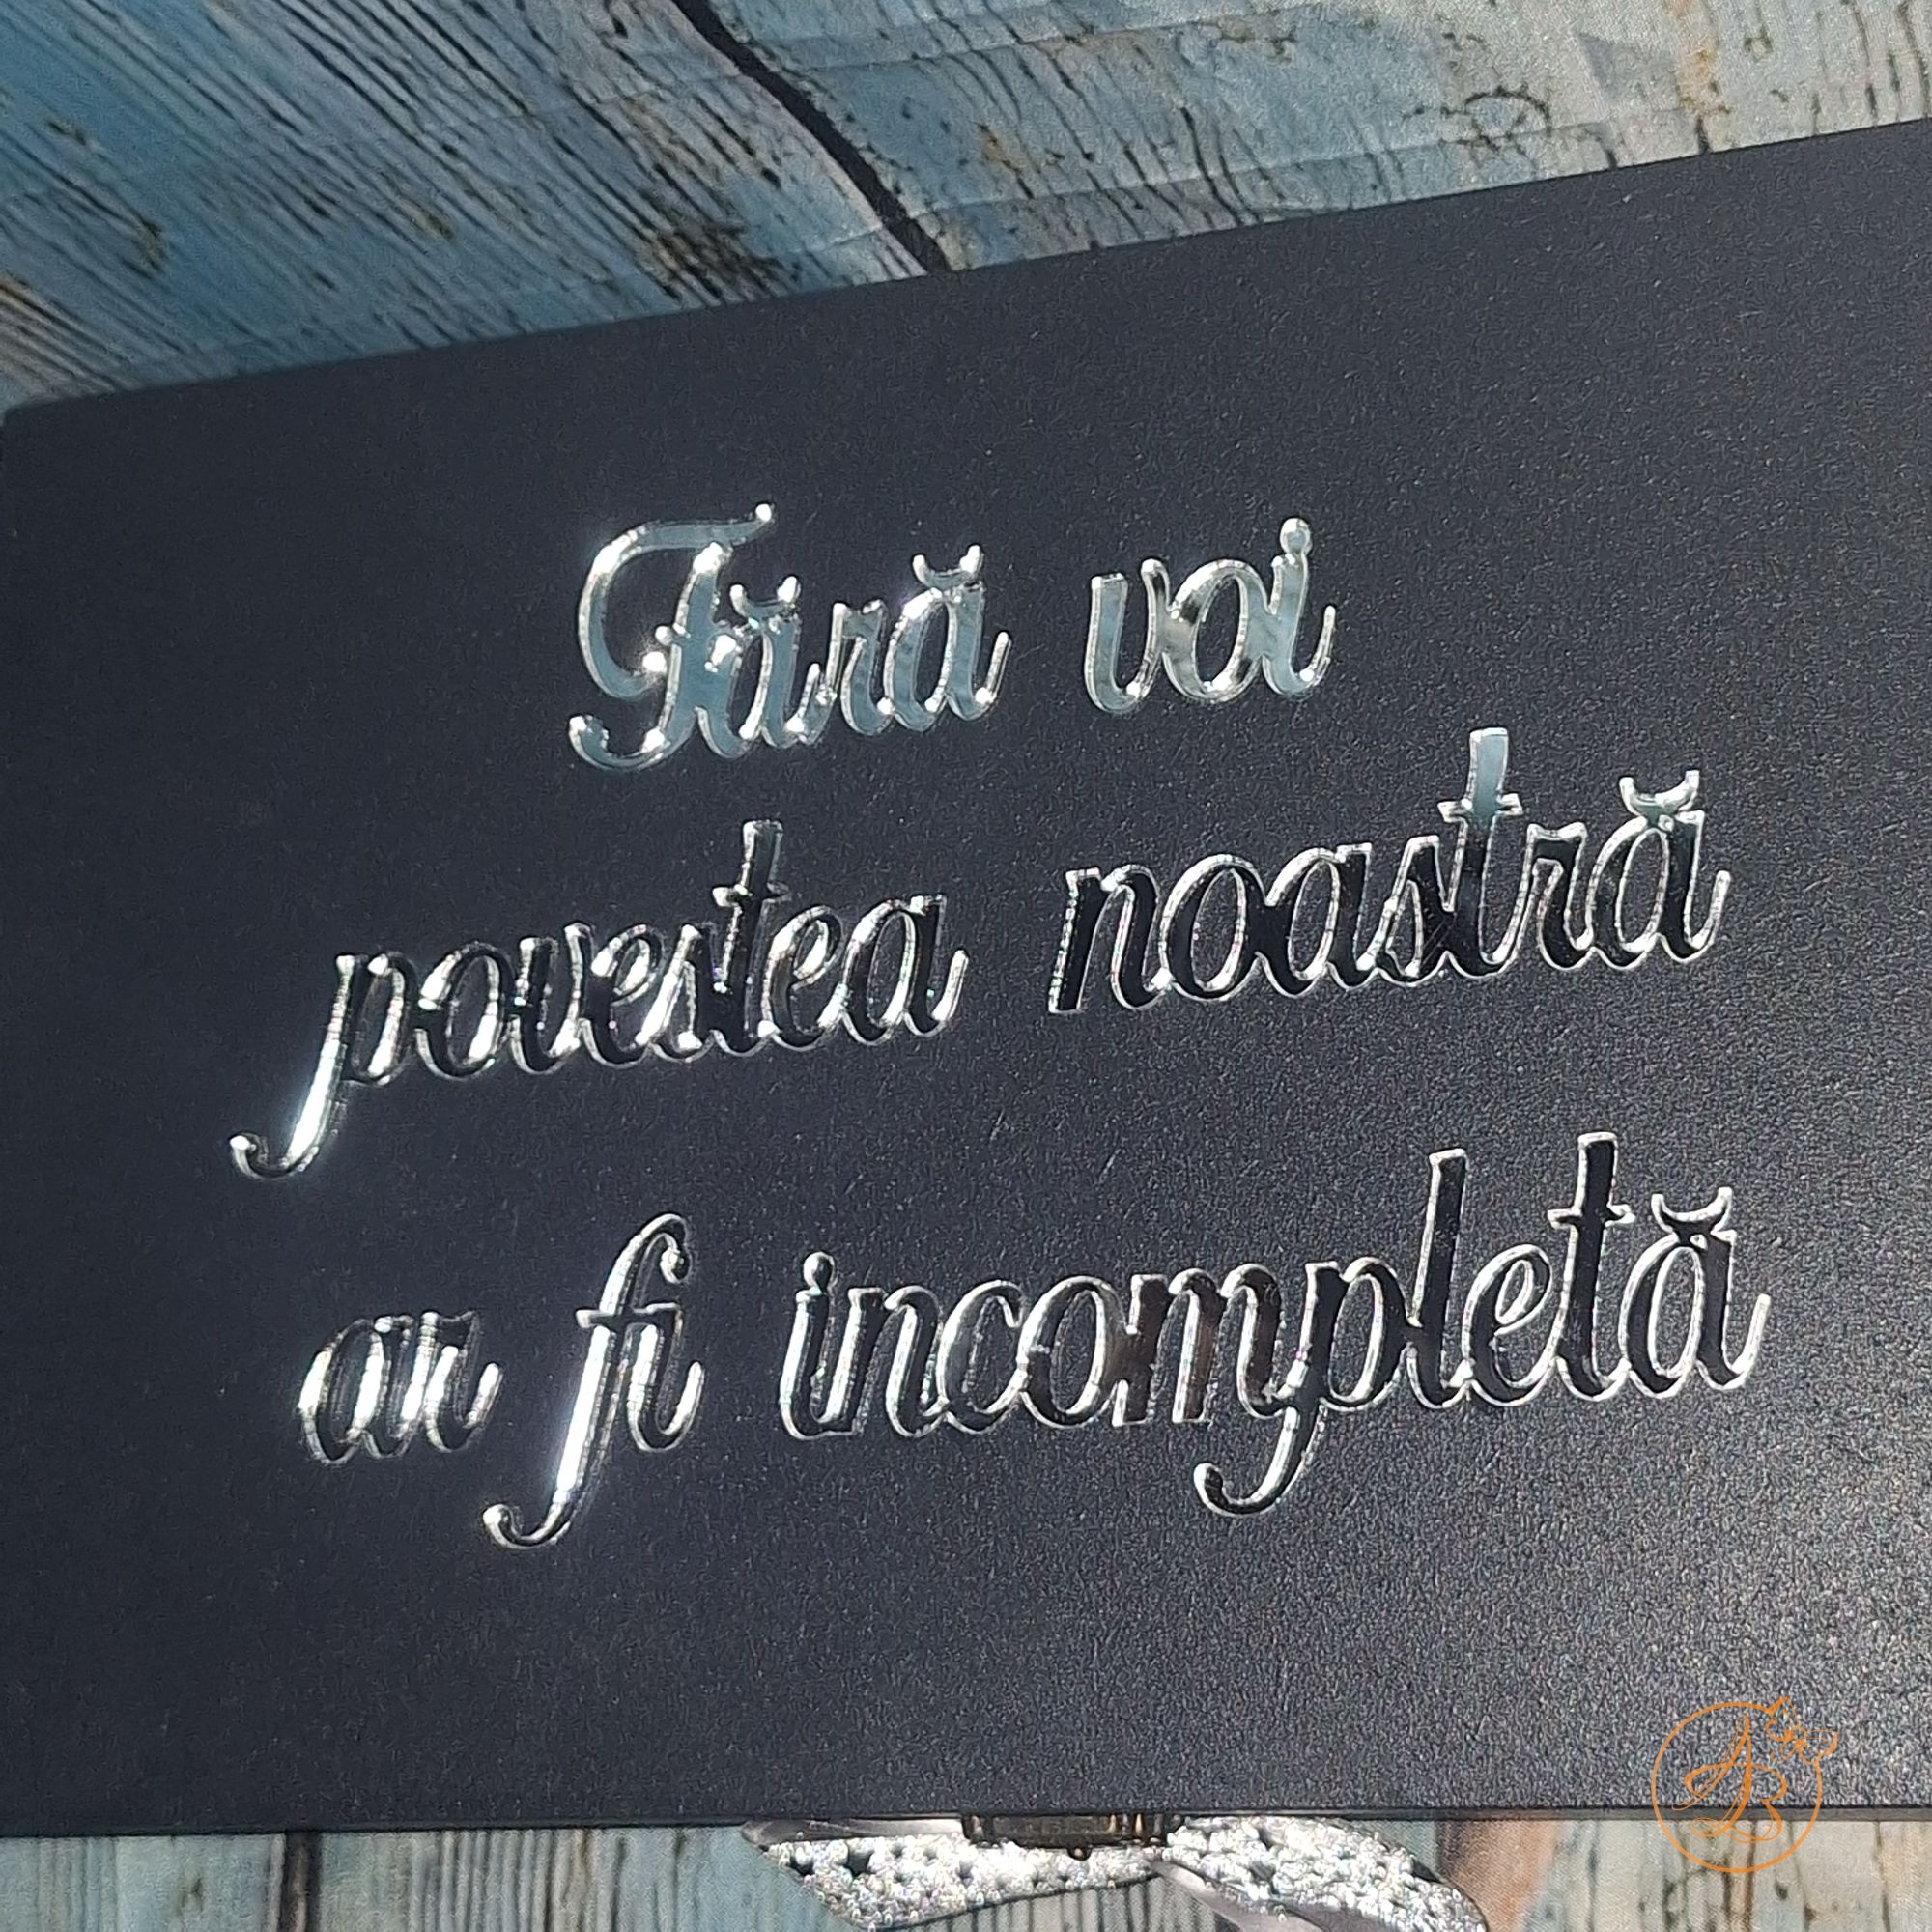 Fără voi
povestea noastră
ar fi incompletă
AB